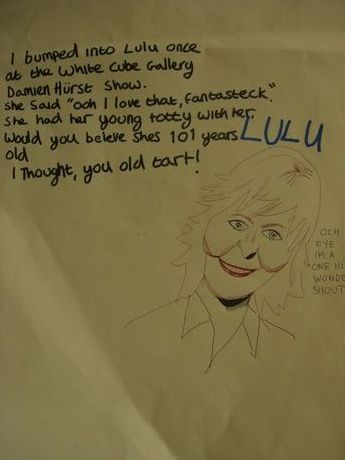 I bumped into Lulu once
at the White Cube Gallery
Damien Hürst Show.
she said "ooh I love that, fantasteck".
she had her young totty with her.
Would you beleve shes 101 years
old
I Thought, you old tart!
LULU
OCH
EYE
I'M A
ONE HI
WONDE
SHOUT